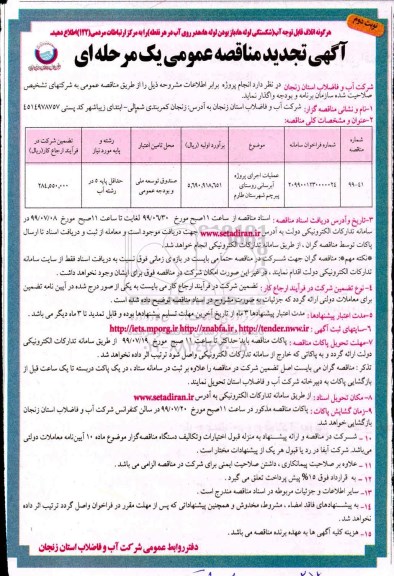 نوبت دوم
هرگونه اتلاف قابل توجه آب (شکستگی لوله ها، باز بودن لوله ها، هدر روی آب در هر نقطه) را به مرکز ارتباطات مردمی (۱۲۲) اطلاع دهید.
آگهی تجدید مناقصه عمومی یک مرحله ای
شرکت آب و فاضلاب استان زنجان در نظر دارد انجام پروژه برابر اطلاعات مشروحه ذیل را از طریق مناقصه عمومی به شرکتهای تشخیص
صلاحیت شده سازمان برنامه و بودجه واگذار نماید.
۱-نام و نشانی مناقصه گزار: شرکت آب و فاضلاب استان زنجان به آدرس: زنجان کمربندی شمالی- ابتدای زیباشهر کد پستی ۴۵۱۴۹۷۸۷۵۷
۲-عنوان و مشخصات کلی مناقصه:
شماره مناقصه | شماره فراخوان سامانه | موضوع | برآورد اولیه (ریال) | محل تامین اعتبار | رشته و پایه مورد نیاز | تضمین شرکت در فرآیند ارجاع کار(ریال)
۹۹-۴۱ | ۲۰۹۹۰۰۱۲۳۰۰۰۰۲۴ | عملیات اجرای پروژه آبرسانی روستای پیرچم شهرستان طارم | ۵,۶۹۰,۹۱۸,۶۵۱ | صندوق توسعه ملی و بودجه عمومی | حداقل پایه ۵ در رشته آب | ۲۸۴,۵۵۰,۰۰۰
۳-تاریخ و آدرس دریافت اسناد مناقصه : اسناد مناقصه از ساعت ۱۱ صبح مورخ ۹۹/۰۶/۳۰ لغایت تا ساعت ۱۱ صبح مورخ ۹۹/۰۷/۰۸ در
سامانه تدارکات الکترونیکی دولت به آدرس www.setadiran.ir جهت دریافت موجود است و معامله از ثبت و دریافت اسناد تا ارسال
پاکات توسط مناقصه گران ، از طریق سامانه تدارکات الکترونیکی انجام خواهد شد.
*نکته مهم*: مناقصه گران جهت شرکت در مناقصه حتما می بایست در بازه ی زمانی فوق نسبت به دریافت اسناد فقط از سایت سامانه
تدارکات الکترونیکی دولت اقدام نمایند ، در غیر این صورت امکان شرکت در مناقصه فوق برای ایشان وجود نخواهد داشت.
۴-نوع تضمین شرکت در فرآیند ارجاع کار: تضمین شرکت در فرآیند ارجاع کار می بایست به یکی از صور درج شده در آیین نامه تضمین
برای معاملات دولتی ارائه گردد که جزئیات به صورت مشروح در اسناد مناقصه توضیح داده شده است.
۵-مدت اعتبار پیشنهادها: مدت اعتبار پیشنهادها ۳ ماه از تاریخ آخرین مهلت تسلیم پیشنهادها بوده و قابل تمدید تا ۳ ماه دیگر می باشد.
۶-سایتهای ثبت آگهی : http://iets.mporg.ir http://znabfa.ir , http://tender.nww.ir
۷-مهلت تحویل پاکات مناقصه: پاکات مناقصه باید حداکثر تا ساعت ۱۰ صبح مورخ ۹۹/۰۷/۱۹ از طریق سامانه تدارکات الکترونیکی
دولت ارائه گردد و به پاکاتی که خارج از سامانه تدارکات الکترونیکی واصل شود ترتیب اثر داده نخواهد شد.
تذکر : مناقصه گران می بایست اصل تضمین شرکت در مناقصه را علاوه بر ثبت در سامانه ستاد ، در یک پاکت دربسته تا یک ساعت قبل از
بازگشایی پاکات به دبیرخانه شرکت آب و فاضلاب استان تحویل نمایند.
۸-مکان تحویل اسناد : از طریق سامانه تدارکات الکترونیکی به آدرس www.setadiran.ir
۹-زمان گشایش پاکات: پاکات مناقصه مذکور در ساعت ۱۱ صبح مورخ ۹۹/۰۷/۲۰ در سالن کنفرانس شرکت آب و فاضلاب استان زنجان
بازگشایی خواهد شد.
۱۰ - شرکت در مناقصه و ارائه پیشنهاد به منزله قبول اختیارات و تکالیف دستگاه مناقصه گزار موضوع ماده ۱۰ آیین نامه معاملات دولتی
می باشد. شرکت آبفا در رد یا قبول هر یک از پیشنهادات مختار است .
۱۱ - علاوه بر صلاحیت پیمانکاری ، داشتن صلاحیت ایمنی برای شرکت در مناقصه الزامی می باشد.
۱۲ - به قرارداد فوق ۱۵% پیش پرداخت تعلق می گیرد.
۱۳ - سایر اطلاعات و جزئیات مربوطه در اسناد مناقصه مندرج است .
۱۴ - به پیشنهادهای فاقد امضاء ، مشروط، مخدوش و همچنین پیشنهاداتی که پس از مهلت مقرر در فراخوان واصل گردد ترتیب اثر داده
نخواهد شد.
۱۵ - هزینه کلیه آگهی ها به عهده برنده مناقصه می باشد.
دفتر روابط عمومی شرکت آب و فاضلاب استان زنجان